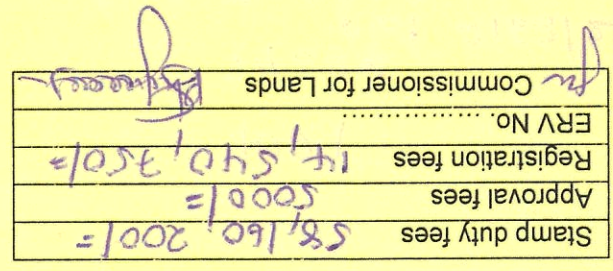 Stamp duty fees 58,160,200/=
Approval fees 5000/=
Registration fees 14,540,750/=
ERV No. ................
Commissioner for Lands